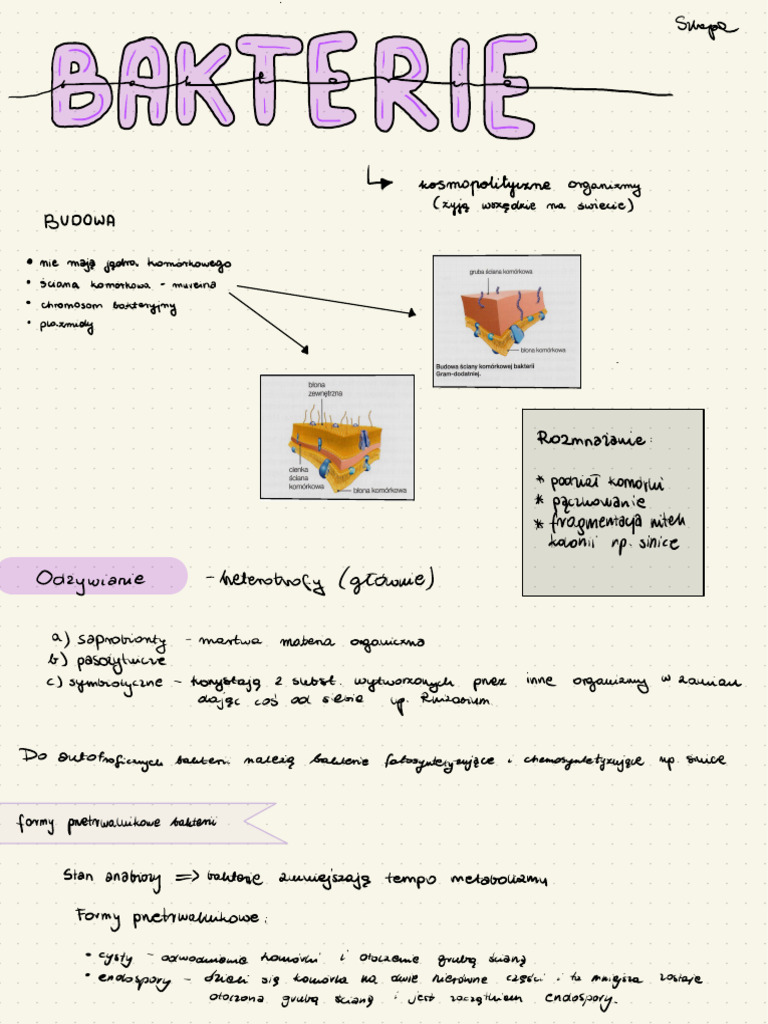 BAKTERIE
bakterie
kosmopolityczne organizmy
(żyją wszędzie na świecie)
BUDOWA
• nie mają jądra komórkowego
• ściana komórkowa - mureina
• chromosom bakteryjny
• plazmidy
gruba ściana komórkowa
błona komórkowa
Budowa ściany komórkowej bakterii
Gram-dodatniej.
błona
zewnętrzna
cienka
ściana
komórkowa
błona komórkowa
Rozmnażanie:
* podział komórki
* pączkowanie
* fragmentacja nitek
kolonii np. sinice
Odżywianie - heterotrofy (głównie)
a) saprobionty - martwa materia organiczna
b) pasożytnicze
c) symbiotyczne - korzystają z subst. wytworzonych przez inne organizmy w zamian
dając coś od siebie np. Rhizobium
Do autotroficznych bakterii należą bakterie fotosyntetyzujące i chemosyntetyzujące np. sinice
formy przetrwalnikowe bakterii
Stan anabiozy => bakterie zmniejszają tempo metabolizmu
Formy przetrwalnikowe:
• cysty - odwodnienie komórki i otoczenie grubą ścianą
• endospory - dzieli się komórka na dwie nierówne części i ta mniejsza zostaje
otoczona grubą ścianą i jest zaczątkiem endospory.